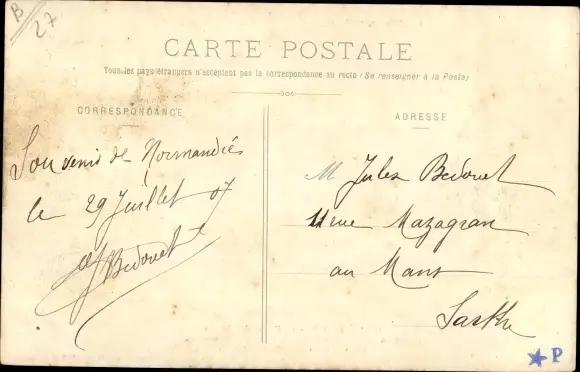 B
27
CARTE POSTALE
Tous les pays étrangers n'acceptent pas la correspondance au recto (Se renseigner à la Poste)
CORRESPONDANCE
Souvenir de Normandiés
le 29 Juillet 07
Bedouet
ADRESSE
M Jules Bedouet
11 rue Mazagran
au Mans
Sarthe
P